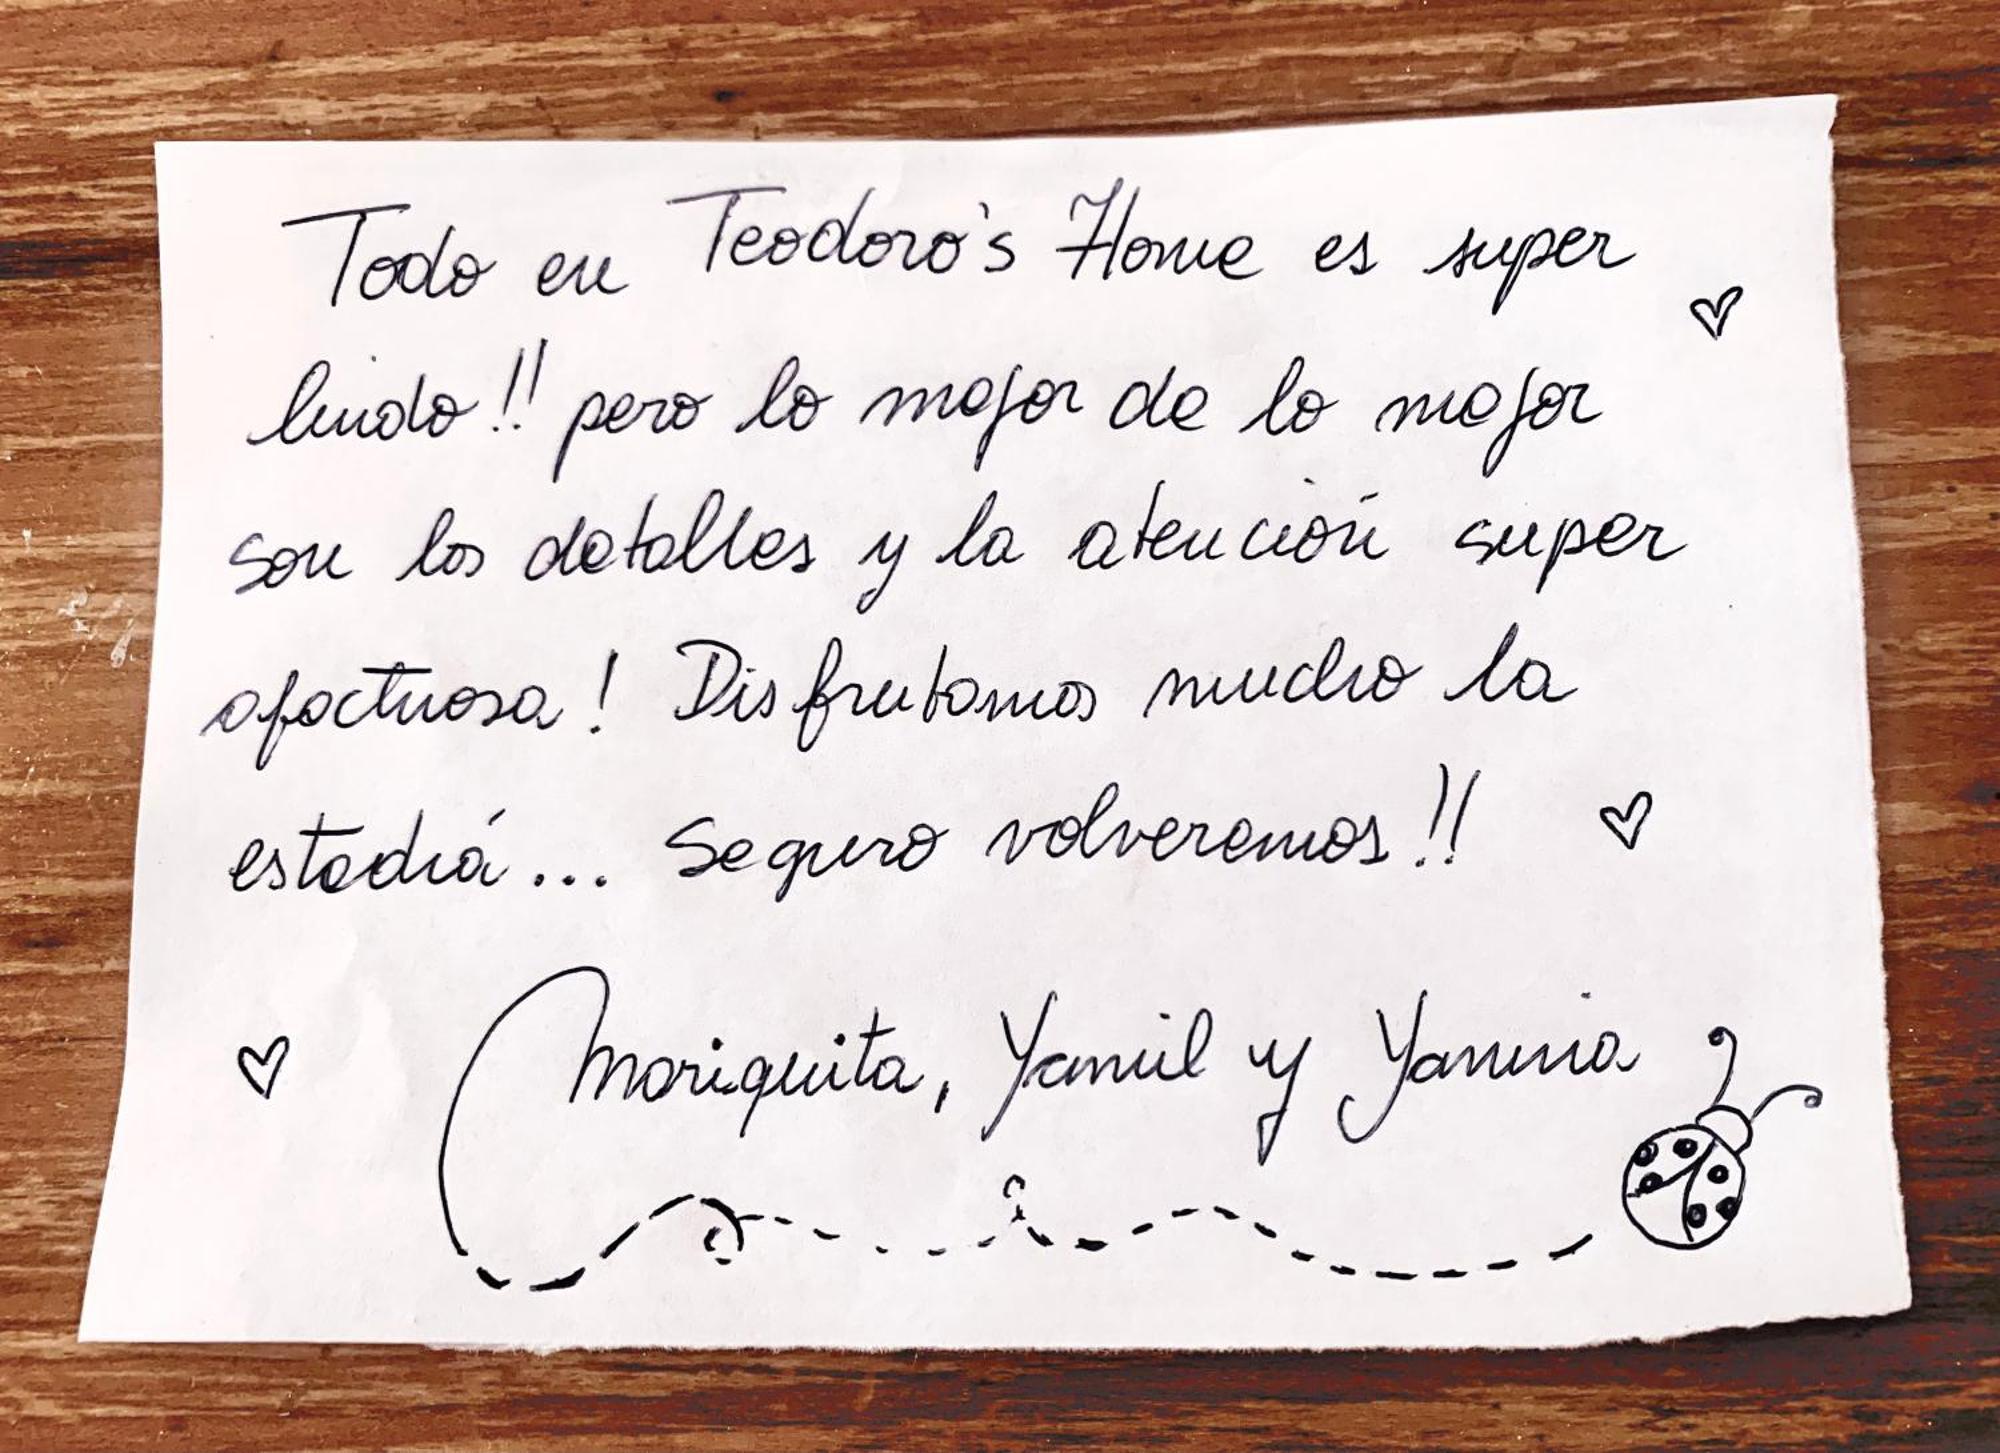 Todo en Teodoro's Home es super
lindo!! pero lo mejor de lo mejor
son los detalles y la atención super
afectuosa! Disfrutamos mucho la
estadiá... Seguro volveremos!!
Mariquita, Yamil y Yanina